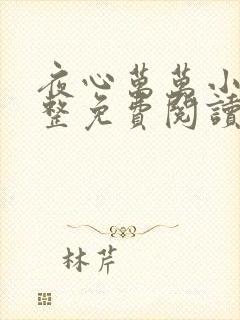 夜心萬萬小
整免費閱讀
林芹